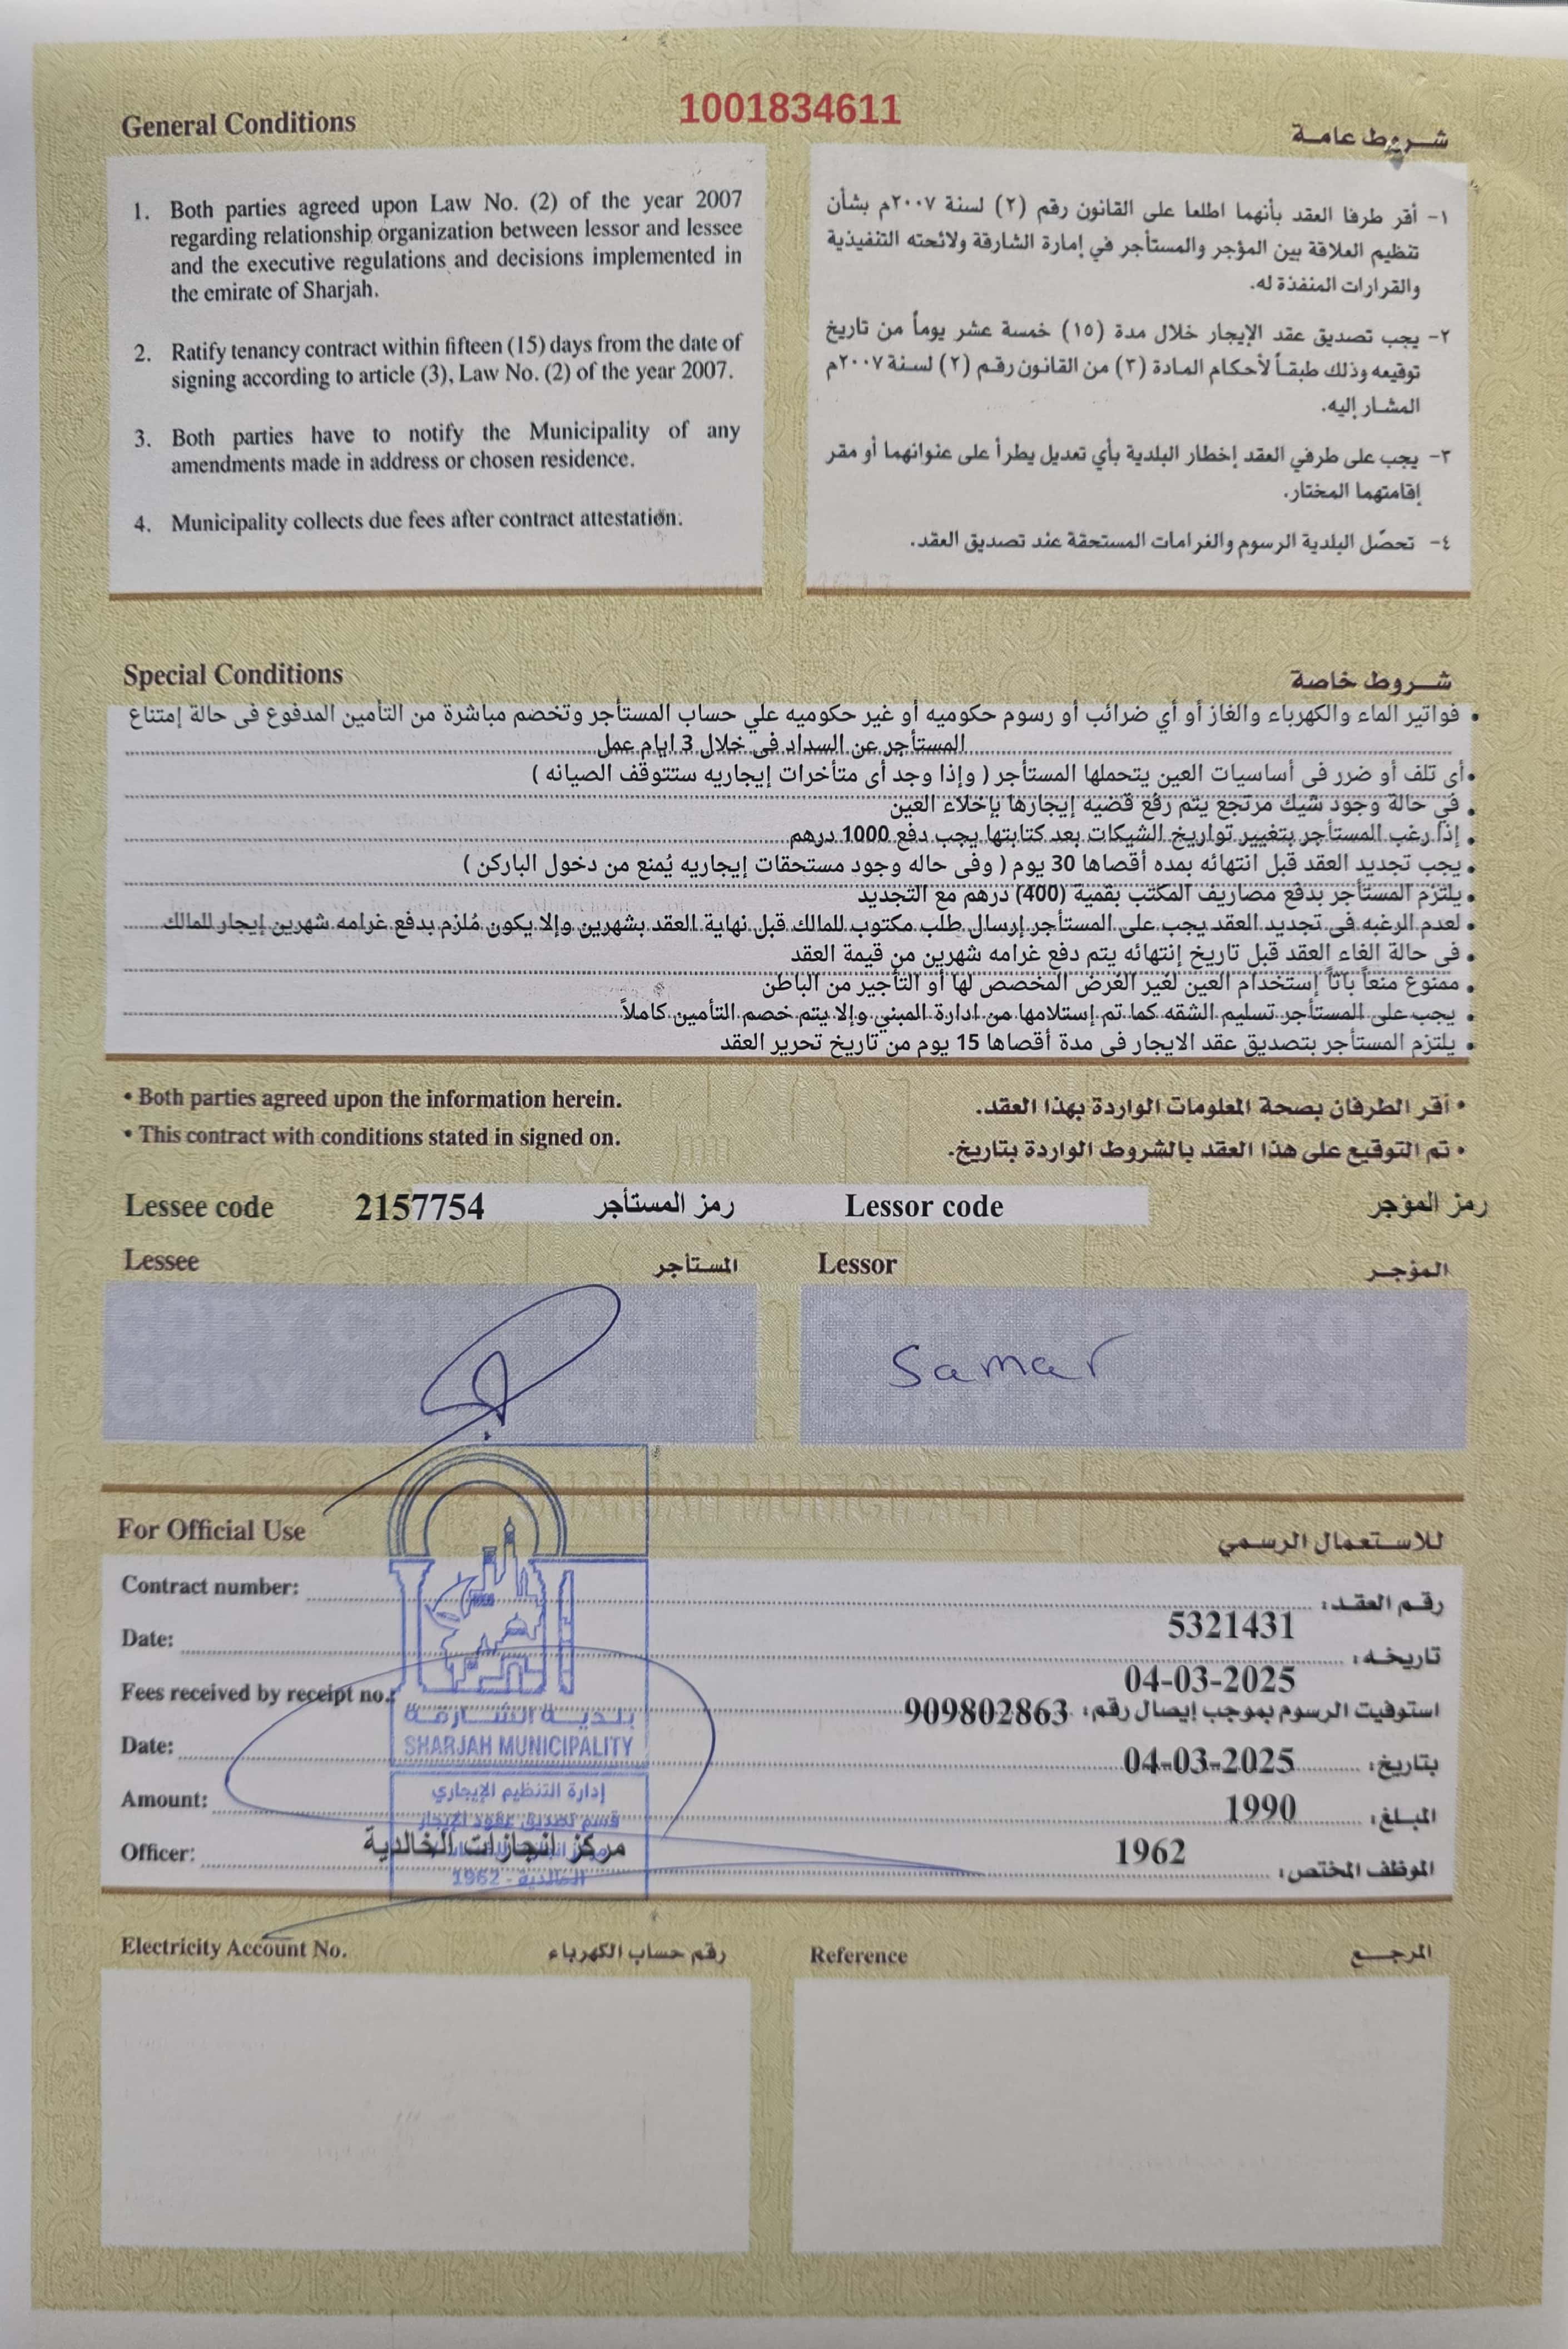 1001834611
General Conditions
شروط عامة
1. Both parties agreed upon Law No. (2) of the year 2007
regarding relationship organization between lessor and lessee
and the executive regulations and decisions implemented in
the emirate of Sharjah.
2. Ratify tenancy contract within fifteen (15) days from the date of
signing according to article (3), Law No. (2) of the year 2007.
3. Both parties have to notify the Municipality of any
amendments made in address or chosen residence.
4. Municipality collects due fees after contract attestation.
١- أقر طرفا العقد بأنهما اطلعا على القانون رقم (٢) لسنة ٢٠٠٧م بشأن
تنظيم العلاقة بين المؤجر والمستأجر في إمارة الشارقة ولائحته التنفيذية
والقرارات المنفذة له.
٢- يجب تصديق عقد الإيجار خلال مدة (١٥) خمسة عشر يوماً من تاريخ
توقيعه وذلك طبقاً لأحكام المادة (٣) من القانون رقم (٢) لسنة ٢٠٠٧م
المشار إليه.
٣- يجب على طرفي العقد إخطار البلدية بأي تعديل يطرأ على عنوانهما أو مقر
إقامتهما المختار.
٤- تحصّل البلدية الرسوم والغرامات المستحقة عند تصديق العقد.
Special Conditions
شروط خاصة
• فواتير الماء والكهرباء والغاز أو أي ضرائب أو رسوم حكوميه أو غير حكوميه علي حساب المستأجر وتخضم مباشرة من التأمين المدفوع فى حالة إمتناع
المستأجر عن السداد فى خلال 3 ايام عمل
• أى تلف أو ضرر فى أساسيات العين يتحملها المستأجر ( وإذا وجد أى متأخرات إيجاريه ستتوقف الصيانه )
• في حالة وجود شيك مرتجع يتم رفع قضيه إيجارها بإخلاء العين
• إذا رغب المستأجر بتغيير تواريخ الشيكات بعد كتابتها يجب دفع 1000 درهم
• يجب تجديد العقد قبل انتهائه بمده أقصاها 30 يوم ( وفى حاله وجود مستحقات إيجاريه يُمنع من دخول الباركن )
• يلتزم المستأجر بدفع مصاريف المكتب بقمية (400) درهم مع التجديد
• لعدم الرغبه فى تجديد العقد يجب على المستأجر إرسال طلب مكتوب للمالك قبل نهاية العقد بشهرين وإلا يكون مُلزم بدفع غرامه شهرين إيجار للمالك
• فى حالة الغاء العقد قبل تاريخ إنتهائه يتم دفع غرامه شهرين من قيمة العقد
• ممنوع منعاً باتاً إستخدام العين لغير الغرض المخصص لها أو التأجير من الباطن
• يجب على المستأجر تسليم الشقه كما تم إستلامها من ادارة المبني وإلا يتم خصم التأمين كاملاً
• يلتزم المستأجر بتصديق عقد الايجار فى مدة أقصاها 15 يوم من تاريخ تحرير العقد
• Both parties agreed upon the information herein.
• أقر الطرفان بصحة المعلومات الواردة بهذا العقد.
• This contract with conditions stated in signed on.
• تم التوقيع على هذا العقد بالشروط الواردة بتاريخ.
Lessee code 2157754 رمز المستأجر Lessor code رمز المؤجر
Lessee المستأجر Lessor المؤجر
Samar
SHARJAH MUNICIPALITY
For Official Use
للاستعمال الرسمي
Contract number: رقم العقد:
5321431
Date: تاريخه:
04-03-2025
Fees received by receipt no.: استوفيت الرسوم بموجب إيصال رقم: 909802863
Date: بتاريخ: 04-03-2025
Amount: المبلغ: 1990
Officer: الموظف المختص: 1962
مركز انجازات الخالدية
بلدية الشارقة
SHARJAH MUNICIPALITY
إدارة التنظيم الإيجاري
قسم تصديق عقود الإيجار
الخالدية - 1962
Electricity Account No. رقم حساب الكهرباء
Reference المرجع